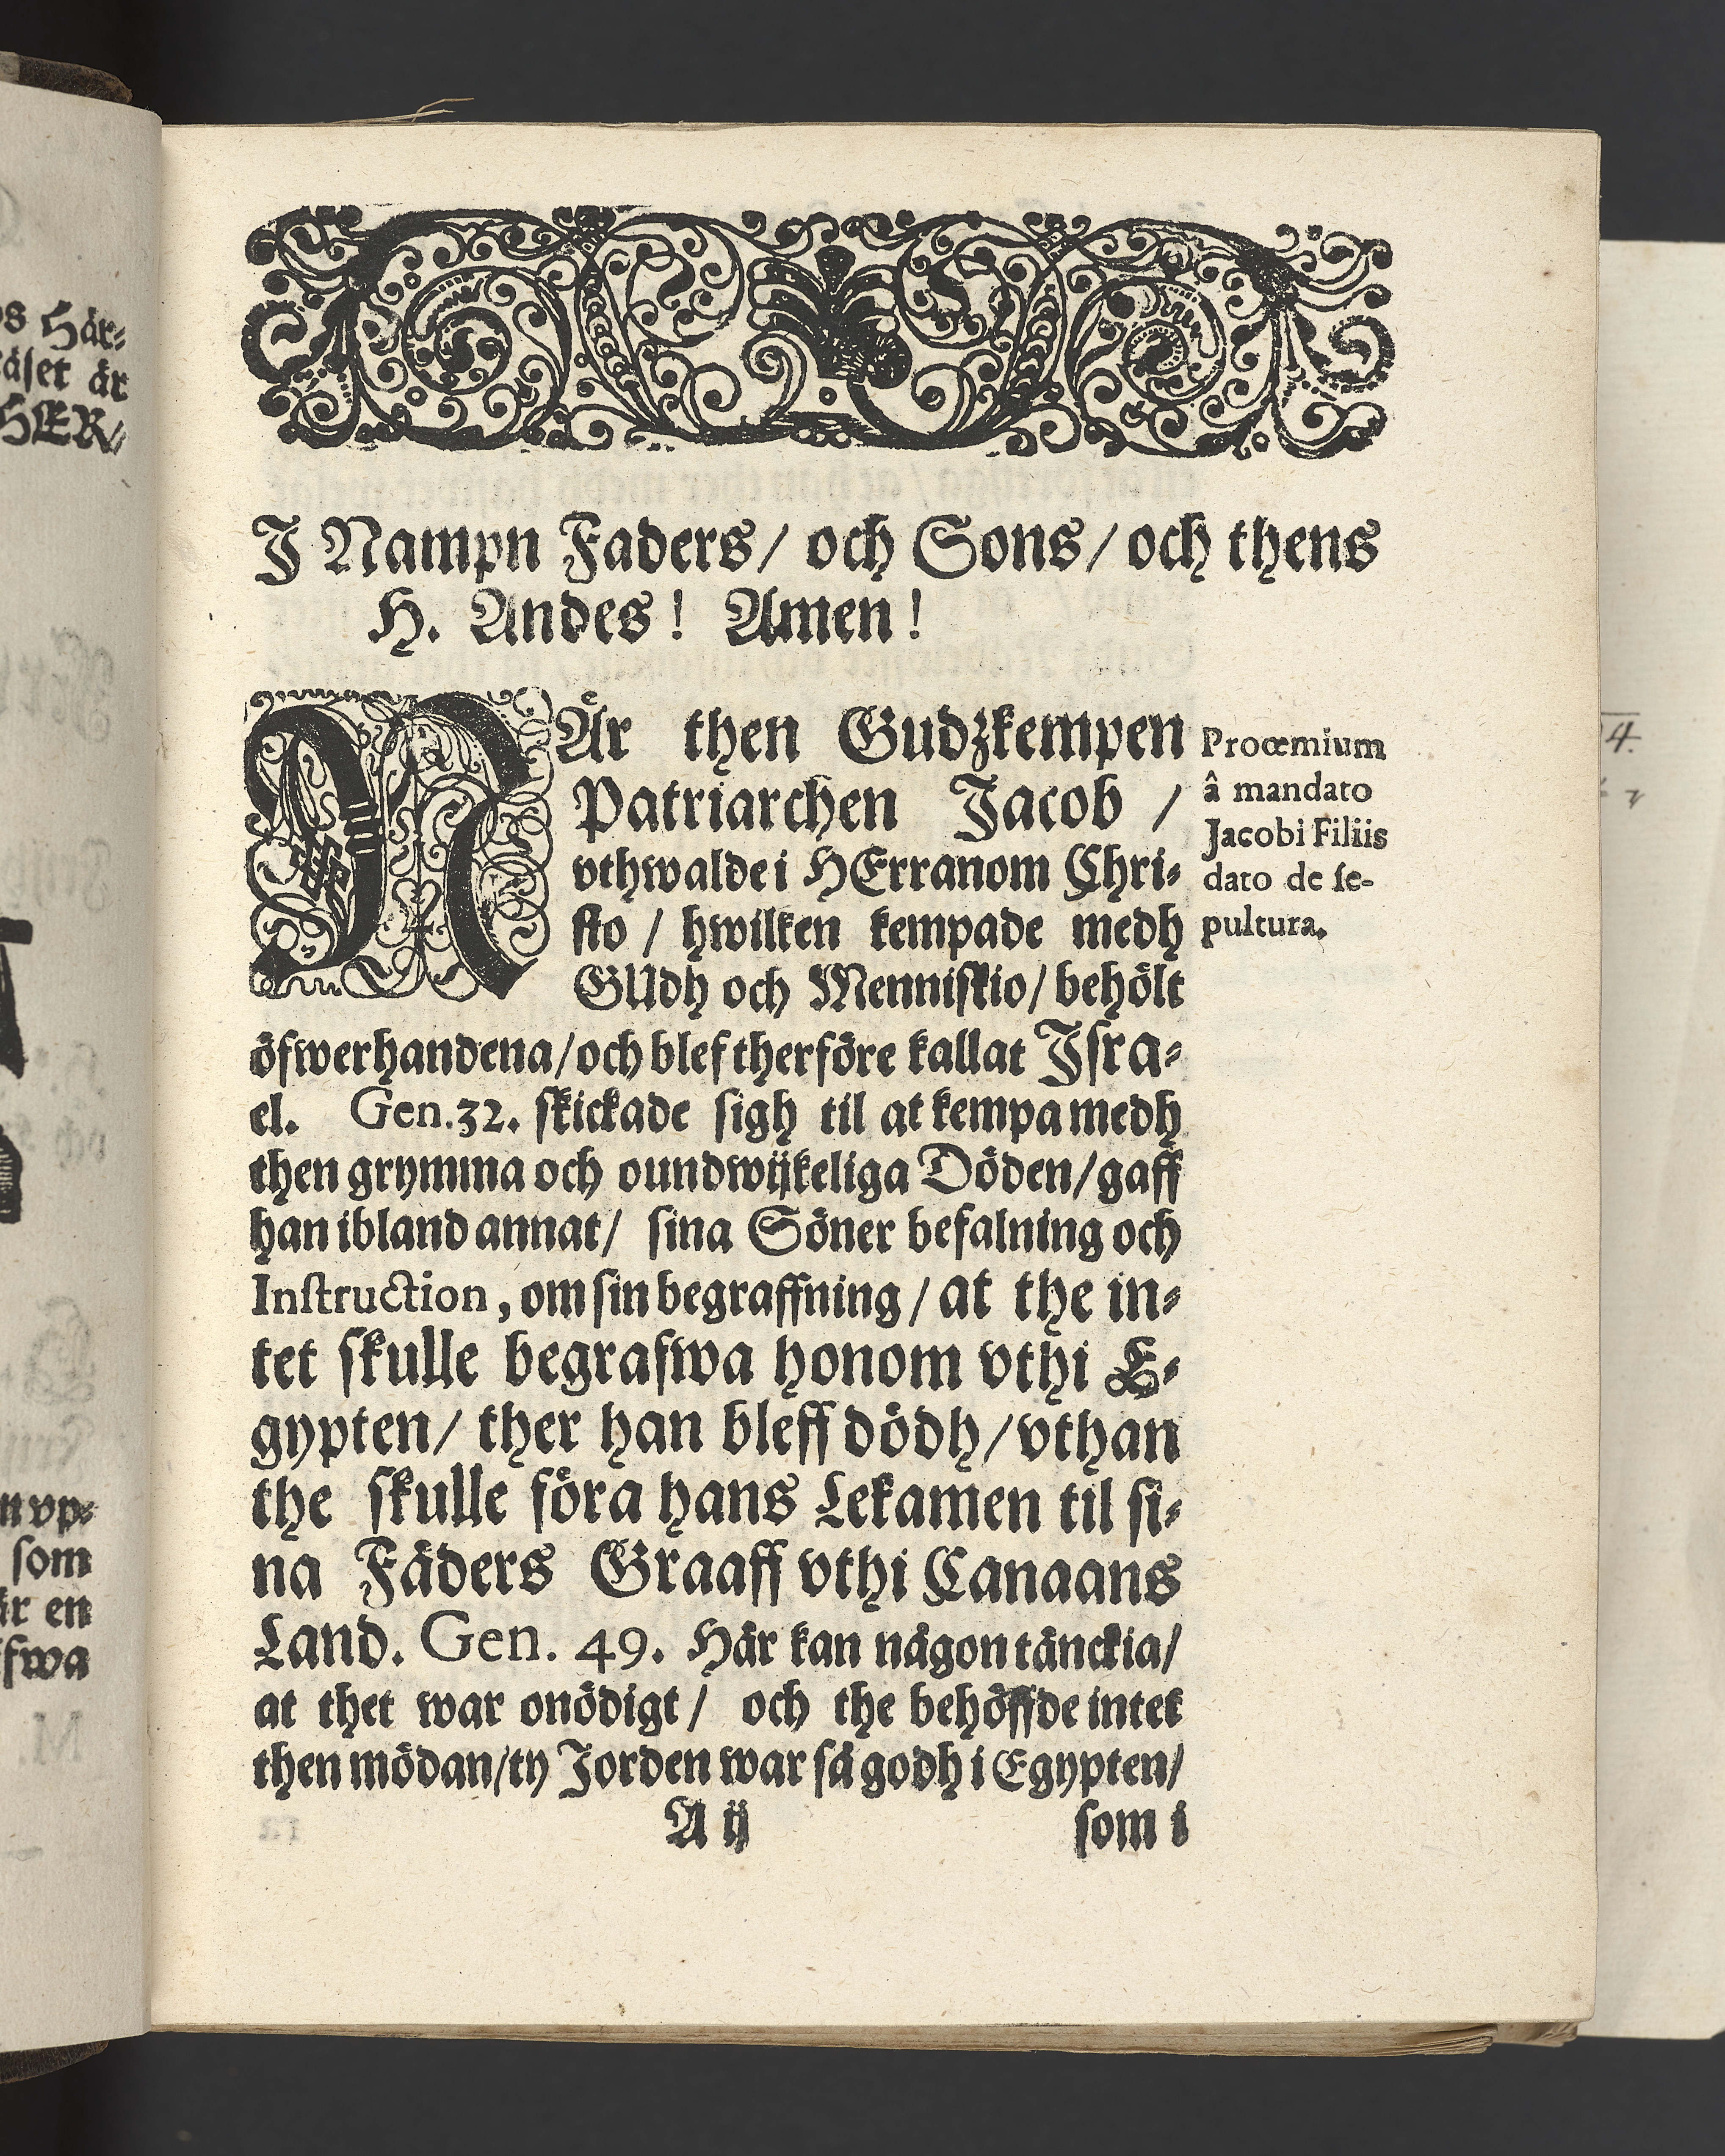 J Nampn Faders/ och Sons/ och thens
H. Andes! Amen!
NÄr then Gudzkempen
Patriarchen Jacob /
vthwalde i HErranom Chri-
sto / hwilken kempade medh
GUdh och Menniskio/ behölt
öfwerhandena/och blef therföre kallat Jsra-
el. Gen.32. skickade sigh til at kempa medh
then grymma och oundwijkeliga Döden/gaff
han ibland annat/ sina Söner befalning och
Instruction, om sin begraffning / at the in-
tet skulle begrafwa honom vthi E-
gypten/ ther han bleff dödh/vthan
the skulle föra hans Lekamen til si-
na Fäders Graaff vthi Canaans
Land. Gen. 49. Här kan någon tänckia/
at thet war onödigt/ och the behöffde intet
then mödan/ty Jorden war så godh i Egypten/
A ij
som i
Prooemium
â mandato
Jacobi Filiis
dato de se-
pultura.
Här-
är
HER-
vp-
som
är en
fwa
4.